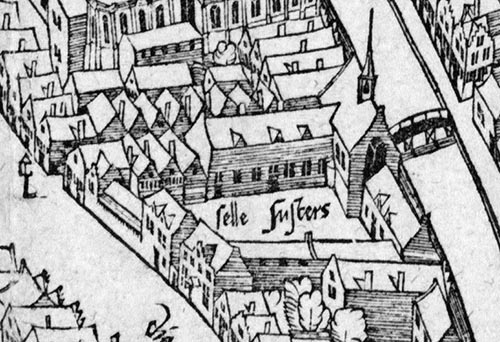 ſelle ſuſters